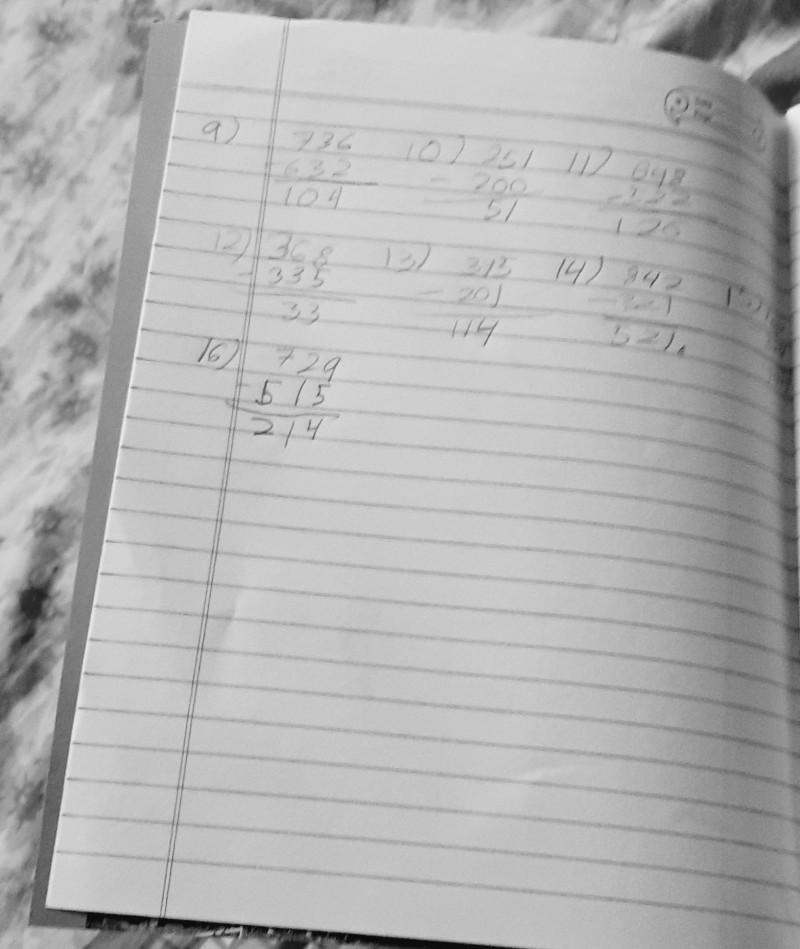 9) 736 10) 251 11) 848
- 632 - 200
104 51 120
12) 368 13) 315 14) 842
- 335 - 201 - 321
33 114 521
16) 729
- 515
214